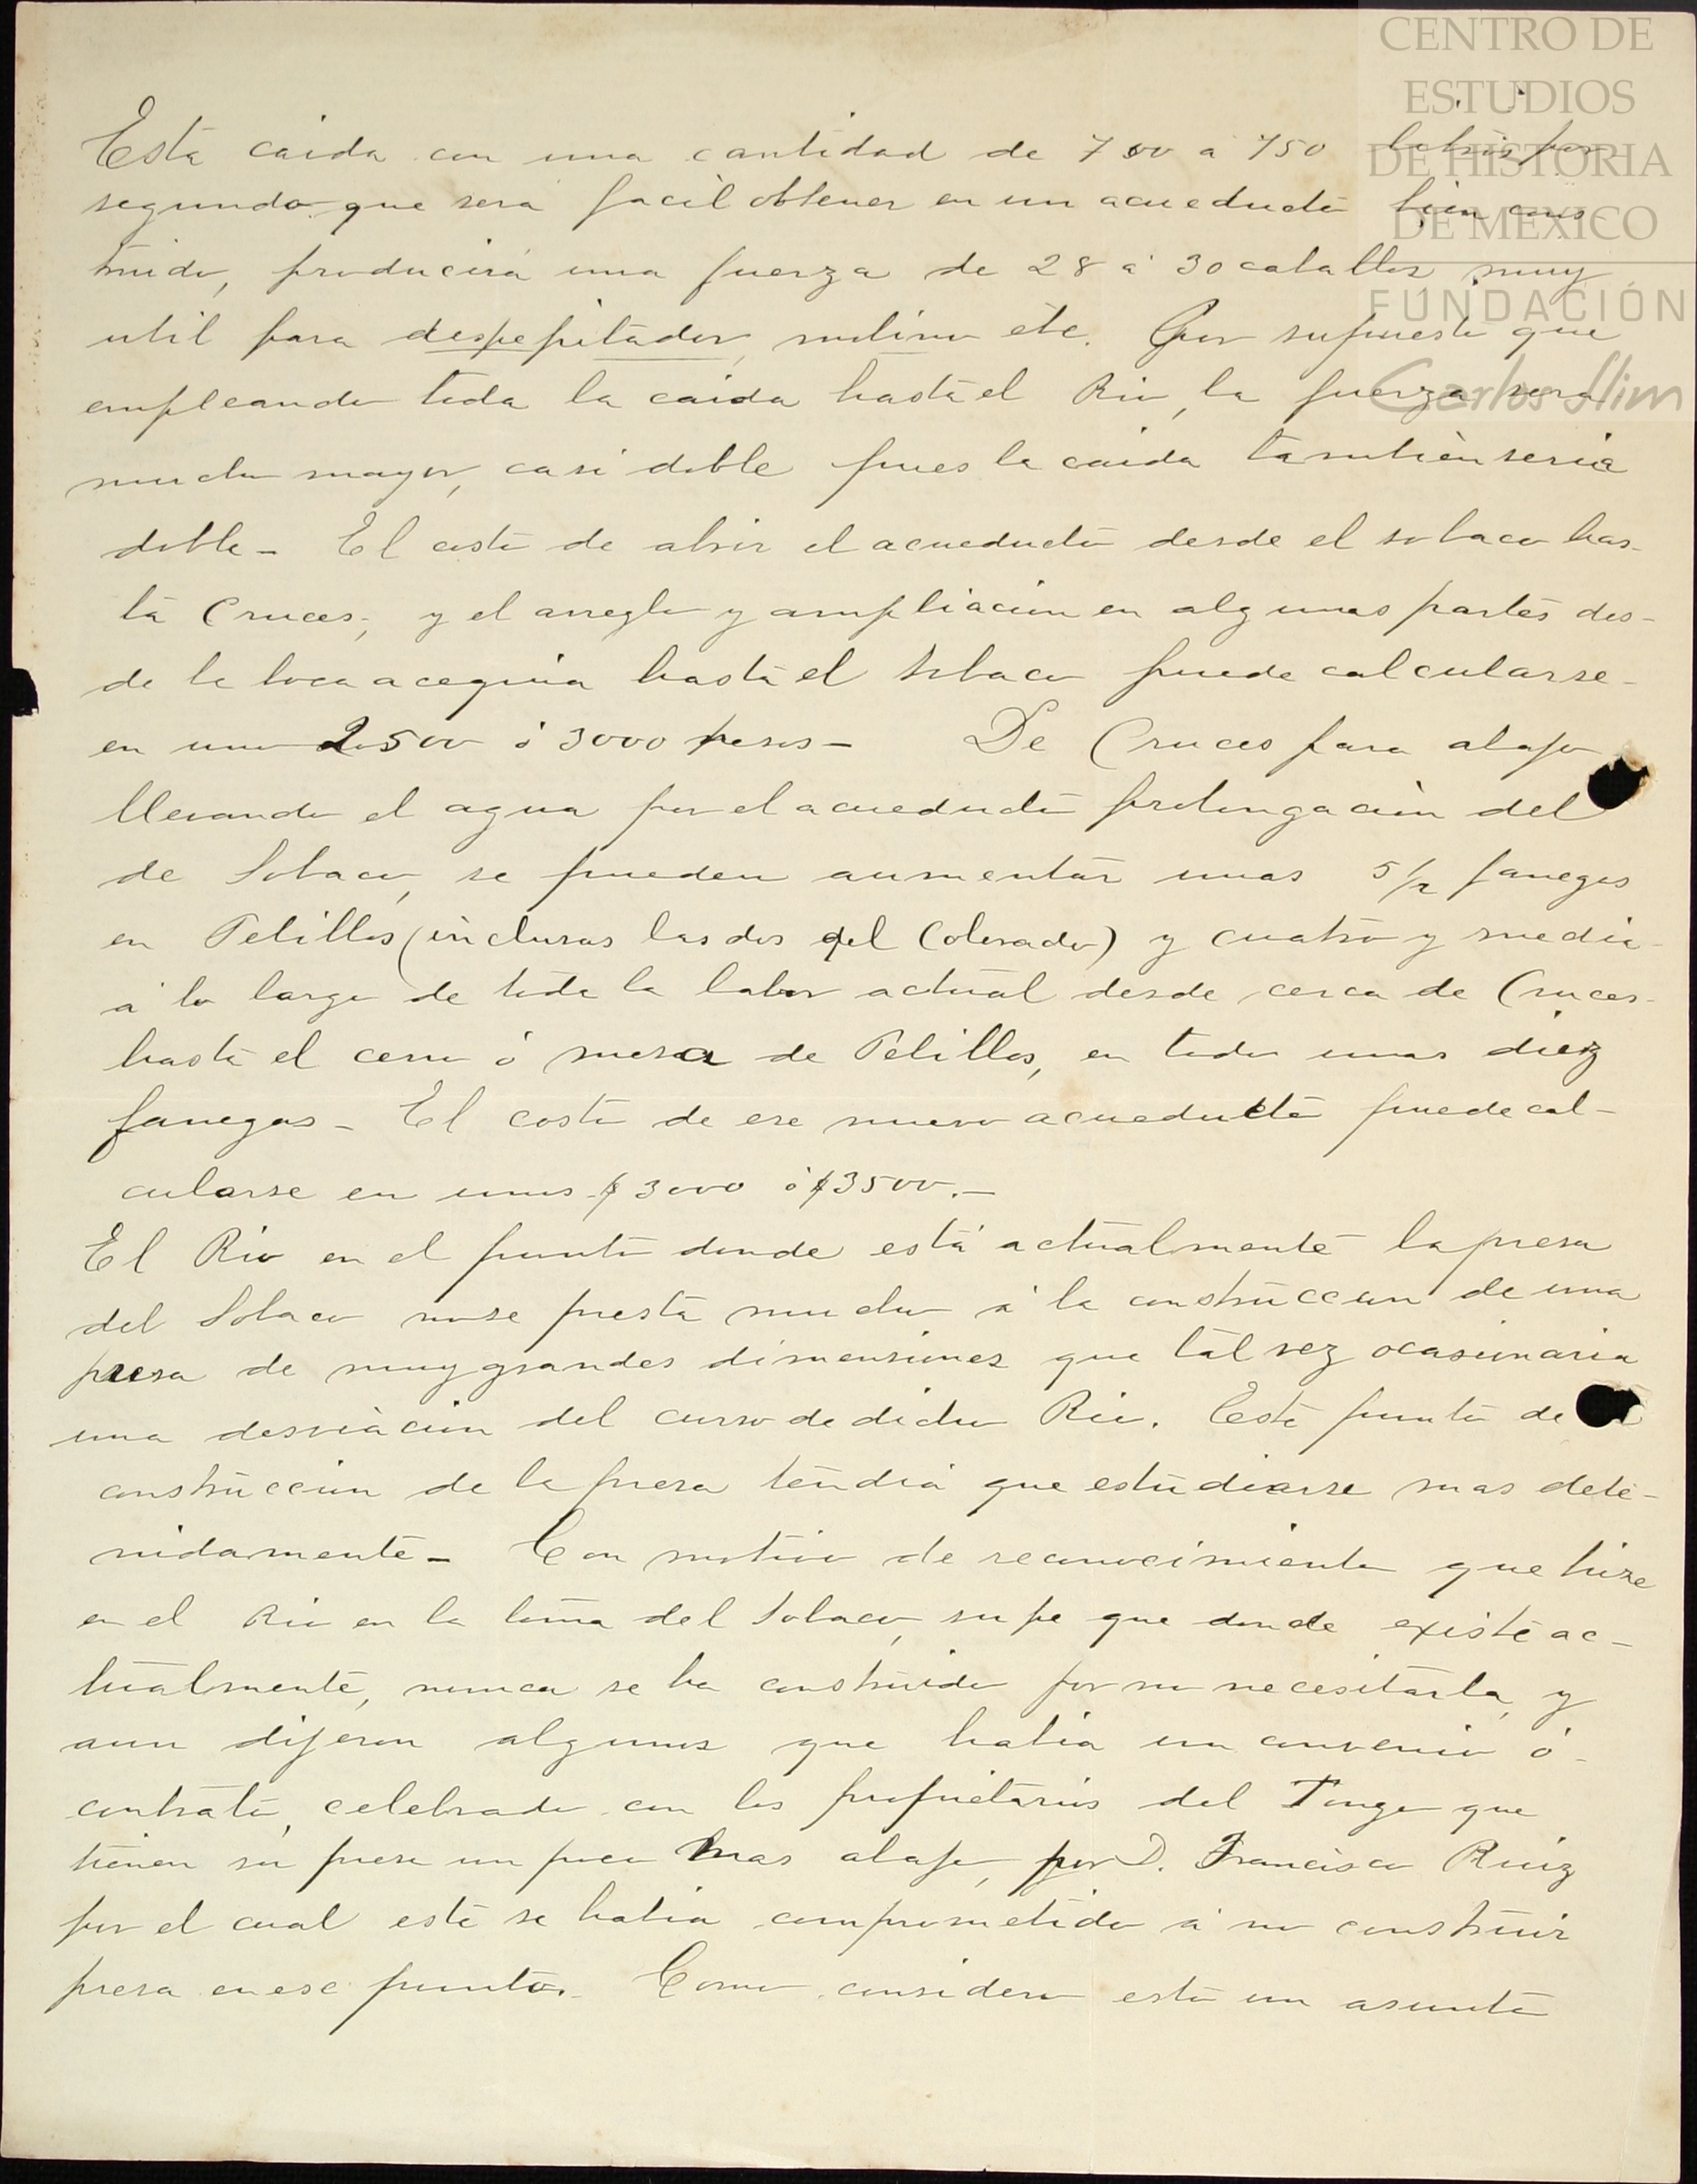 CENTRO DE
ESTUDIOS
DE HISTORIA
DE MEXICO
FUNDACIÓN
Carlos Slim
Esta caida con una cantidad de 700 a 750 litros por
segundo que será facil obtener en un acueducto bien cons-
truido, producirá una fuerza de 28 á 30 caballos muy
util para despepitador, molino etc. Por supuesto que
empleando toda la caida hasta el Rio, la fuerza será
mucho mayor, casi doble pues la caida tambien seria
doble – El costo de abrir el acueducto desde el sobaco has-
ta Cruces, y el arreglo y ampliacion en algunas partes des-
de la boca acequia hasta el Sobaco puede calcularse
en uno 2500 ó 3000 pesos – De Cruces para abajo
llevando el agua por el acueducto prolongacion del
de Sobaco, se pueden aumentar unas 5 1/2 fanegas
en Pelillos (inclusas las dos del Colorado) y cuatro y media
á lo largo de toda la labor actual desde cerca de Cruces
hasta el cerro ó mesa de Pelillos, en todo unas diez
fanegas – El costo de ese nuevo acueducto puede cal-
cularse en unos $3000 ó $3500. –
El Rio en el punto donde está actualmente la presa
del Sobaco no se presta mucho á la construccion de una
presa de muy grandes dimensiones que tal vez ocasionaria
una desviacion del curso de dicho Rio. Este punto de
construccion de la presa tendrá que estudiarse mas dete-
nidamente – Con motivo de reconocimiento que hize
en el Rio en la toma del Sobaco, supe que donde existe ac-
tualmente, nunca se ha construido por no necesitarla, y
aun dijeron algunos que habia un convenio ó
contrato, celebrado con los propietarios del Tongo que
tienen su presa un poco mas abajo, por D. Francisco Ruiz
por el cual este se habia comprometido á no construir
presa en ese punto. Como considero esto un asunto